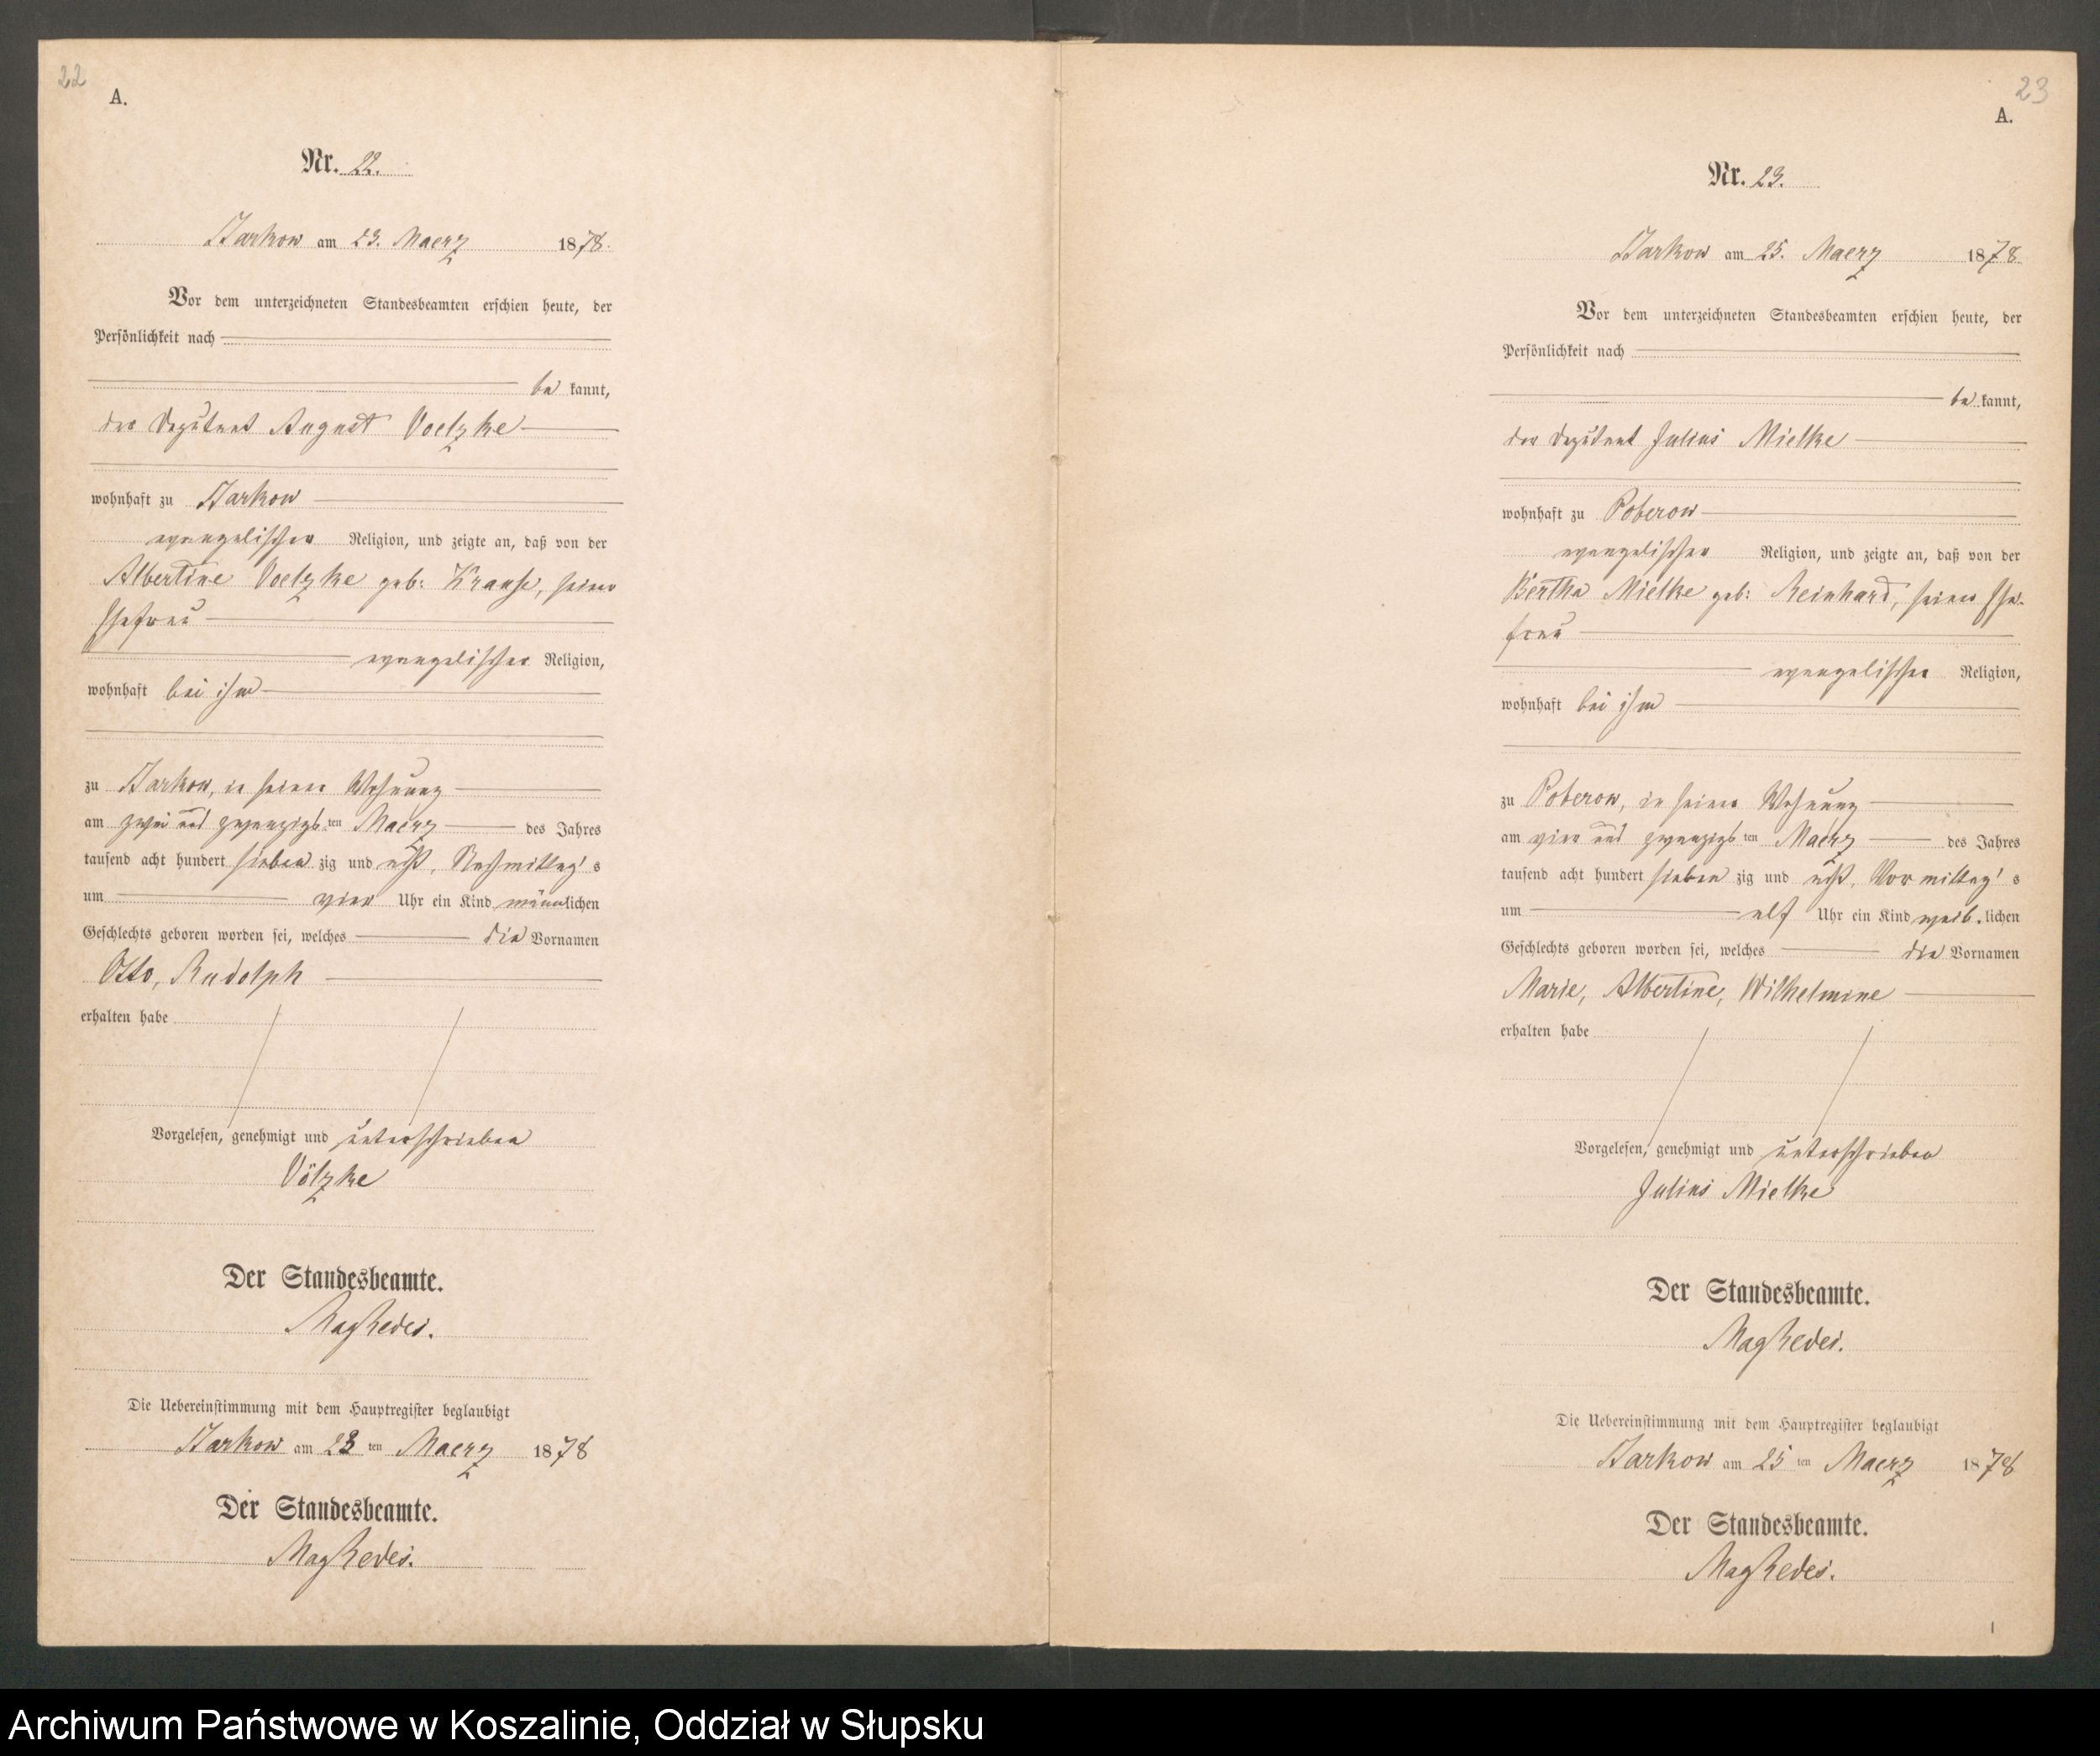 22
A.
Nr. 22.
Barkow am 23. Maerz 1878.
Vor dem unterzeichneten Standesbeamten erschien heute, der
Persönlichkeit nach
be kannt,
der Deputant August Voelzke
wohnhaft zu Barkow
evangelischer Religion, und zeigte an, daß von der
Albertine Voelzke geb: Krause, seiner
Ehefrau
evangelischer Religion,
wohnhaft bei ihm
zu Barkow, in seiner Wohnung
am zwei und zwanzigsten Maerz des Jahres
tausend acht hundert sieben zig und acht, Nachmittag's
um vier Uhr ein Kind männlichen
Geschlechts geboren worden sei, welches die Vornamen
Otto, Rudolph
erhalten habe
Vorgelesen, genehmigt und unterschrieben
Völzke
Der Standesbeamte.
Die Uebereinstimmung mit dem Hauptregister beglaubigt
Barkow am 23 ten Maerz 1878
Der Standesbeamte.
23
A.
Nr. 23.
Barkow am 25. Maerz 1878
Vor dem unterzeichneten Standesbeamten erschien heute, der
Persönlichkeit nach
be kannt,
der Deputant Julius Mielke
wohnhaft zu Poberow
evangelischer Religion, und zeigte an, daß von der
Bertha Mielke geb: Reinhard, seiner Ehe-
frau
evangelischer Religion,
wohnhaft bei ihm
zu Poberow, in seiner Wohnung
am vier und zwanzigsten Maerz des Jahres
tausend acht hundert sieben zig und acht, Vormittag's
um elf Uhr ein Kind weib.lichen
Geschlechts geboren worden sei, welches die Vornamen
Marie, Albertine, Wilhelmine
erhalten habe
Vorgelesen, genehmigt und unterschrieben
Julius Mielke
Der Standesbeamte.
Die Uebereinstimmung mit dem Hauptregister beglaubigt
Barkow am 25 ten Maerz 1878
Der Standesbeamte.
Archiwum Państwowe w Koszalinie, Oddział w Słupsku